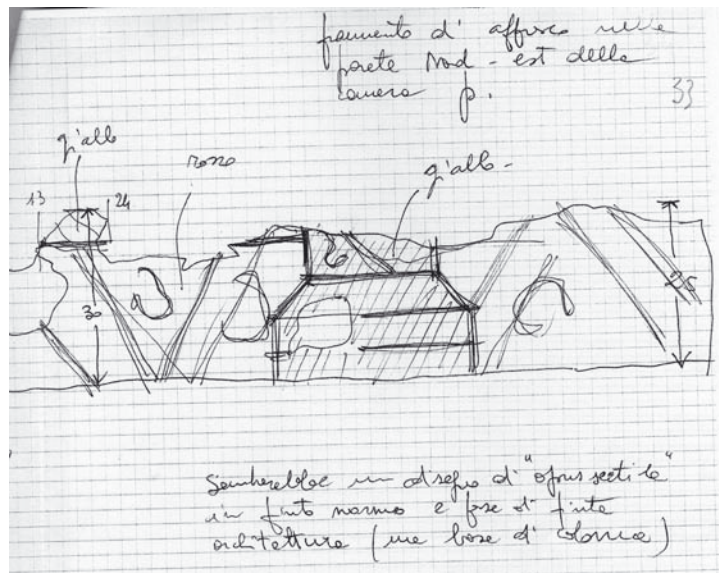 frammento d' affresco nella
parete Nord-est della
camera p.
33
giallo
rosso
giallo-
13
24
30
25
Sembrerebbe un disegno d' "opus sectile"
in finto marmo e forse d' finta
architettura (una base d' colonna)